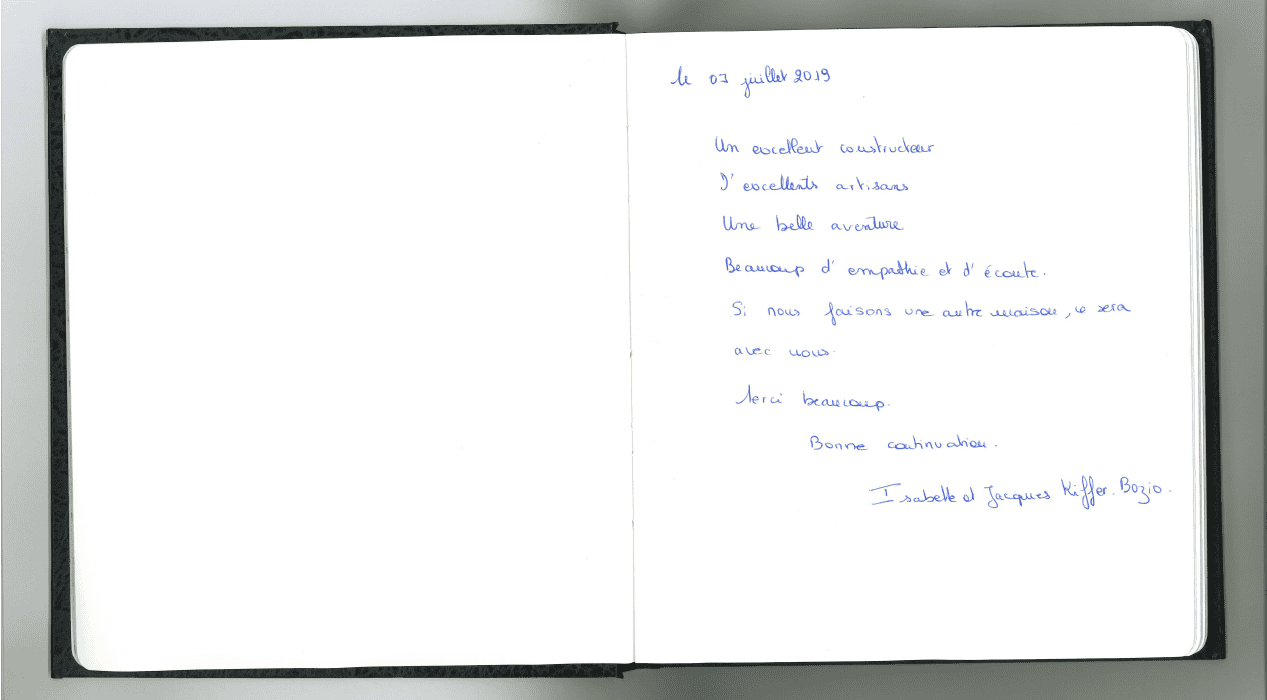 le 07 juillet 2019
Un excellent constructeur
D'excellents artisans
Une belle aventure
Beaucoup d'empathie et d'écoute.
Si nous faisons une autre maison, ce sera
avec vous.
Merci beaucoup.
Bonne continuation.
Isabelle et Jacques Kiffer. Bozio.